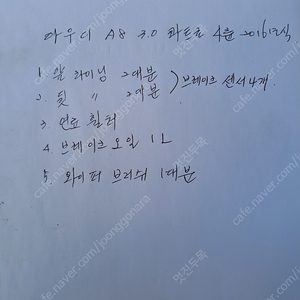 아우디 A8 3.0 콰트로 4륜 2016년식
1. 앞 라이닝 2대분
2. 뒷 〃 2대분 ) 브레이크 센서 4개
3. 연료 휠터
4. 브레이크 오일 1L
5. 와이퍼 브러쉬 1대분
cafe.naver.com/joonggonara
멋진두목